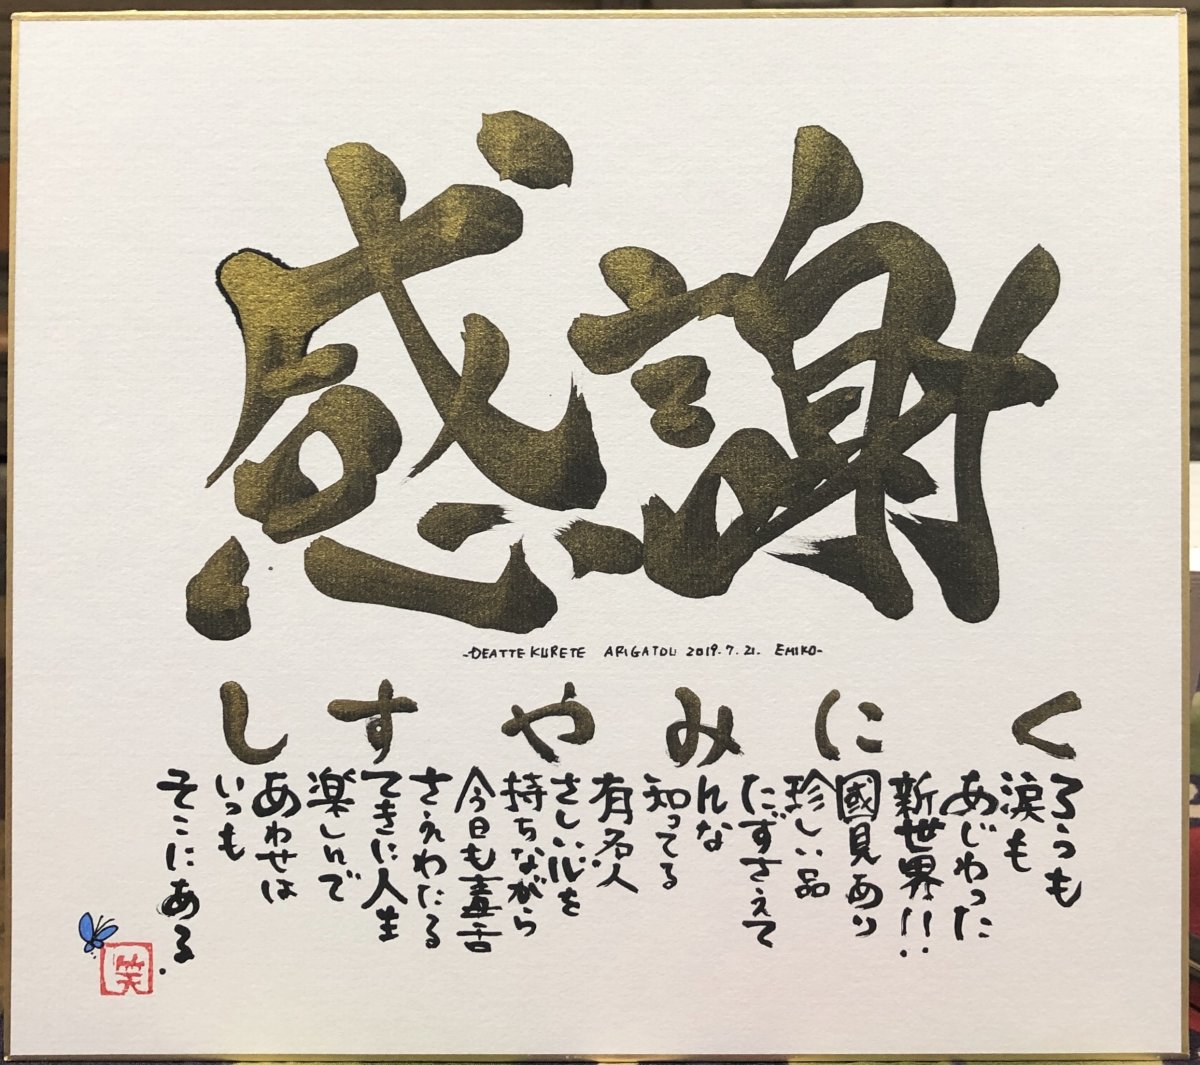 感謝
-DEATTE KURETE ARIGATOU 2019.7.21. EMIKO-
くろうも
涙も
あじわった
新世界!!
に國見あり
珍しい品
たずさえて
みんな
知ってる
有名人
やさしい心を
持ちながら
今日も毒舌
さえわたる
すてきに人生
楽しんで
しあわせは
いつも
そこにある.
笑